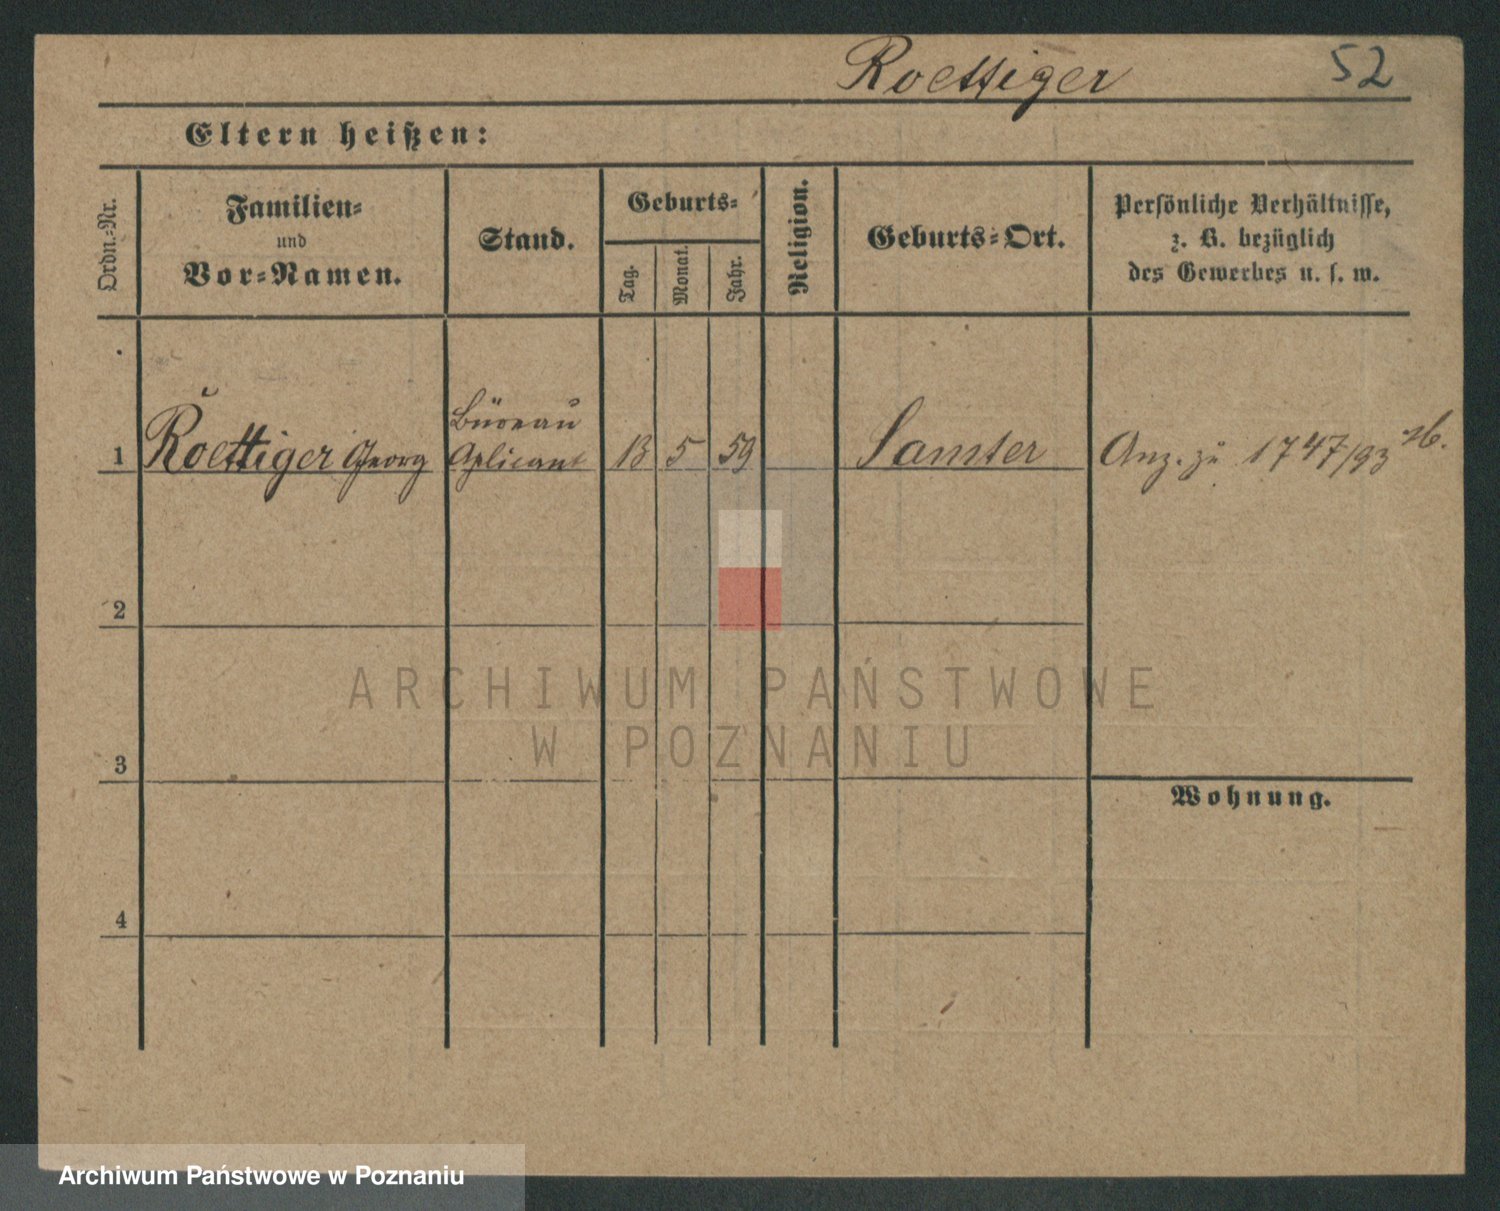 Roettiger 52
Eltern heißen:
Ordn.-Nr.
Familien-
und
Vor-Namen.
Stand.
Geburts-
Tag.
Monat.
Jahr.
Religion.
Geburts-Ort.
Persönliche Verhältnisse,
z. B. bezüglich
des Gewerbes u. s. w.
Büreau
1 Roettiger Georg Aplicant 13 5 59 Samter Anz. zu 1747/93
2
ARCHIWUM PAŃSTWOWE
W POZNANIU
3
Wohnung.
4
Archiwum Państwowe w Poznaniu